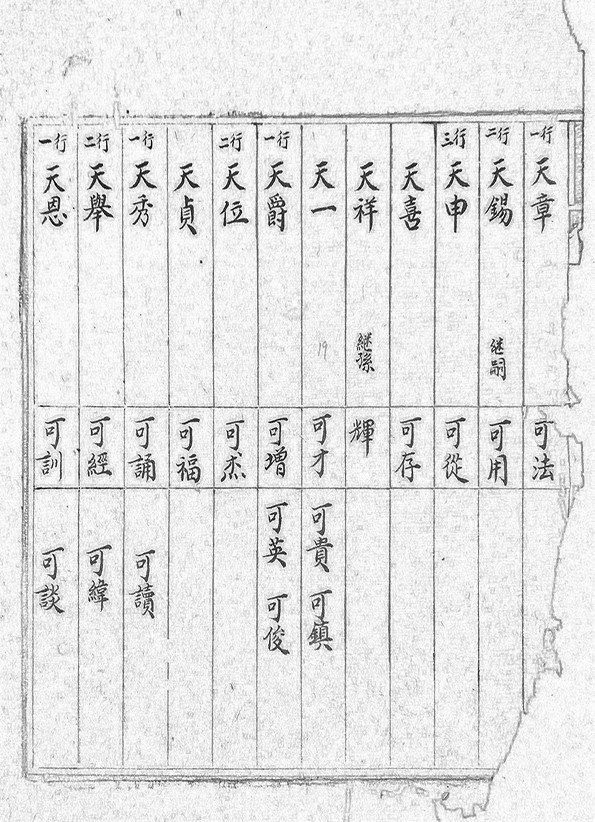 行一 天章 可法
行二 天錫 継嗣 可用
行三 天申 可從
天喜 可存
天祥 継孫 輝
天一 19 可才 可貴 可鎮
行一 天爵 可增 可英 可俊
行二 天位 可杰
天貞 可福
行一 天秀 可誦 可讀
行二 天舉 可經 可緯
行一 天恩 可訓 可談